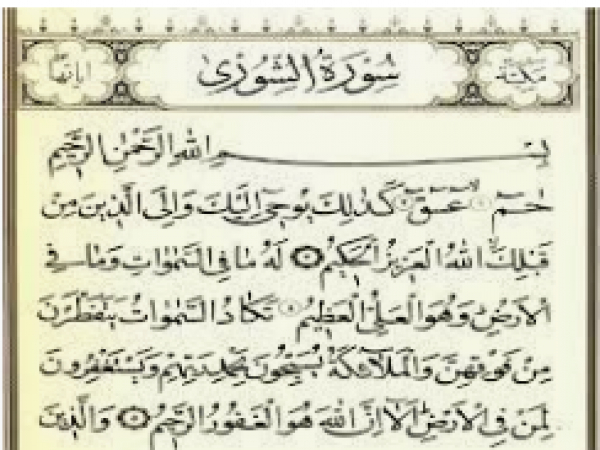 مكية سورة الشورى آياتها
بسم الله الرحمن الرحيم
حم عسق كذلك يوحي إليك وإلى الذين من
قبلك الله العزيز الحكيم له ما في السموات وما في
الأرض وهو العلي العظيم تكاد السموات يتفطرن
من فوقهن والملائكة يسبحون بحمد ربهم ويستغفرون
لمن في الأرض ألا إن الله هو الغفور الرحيم والذين